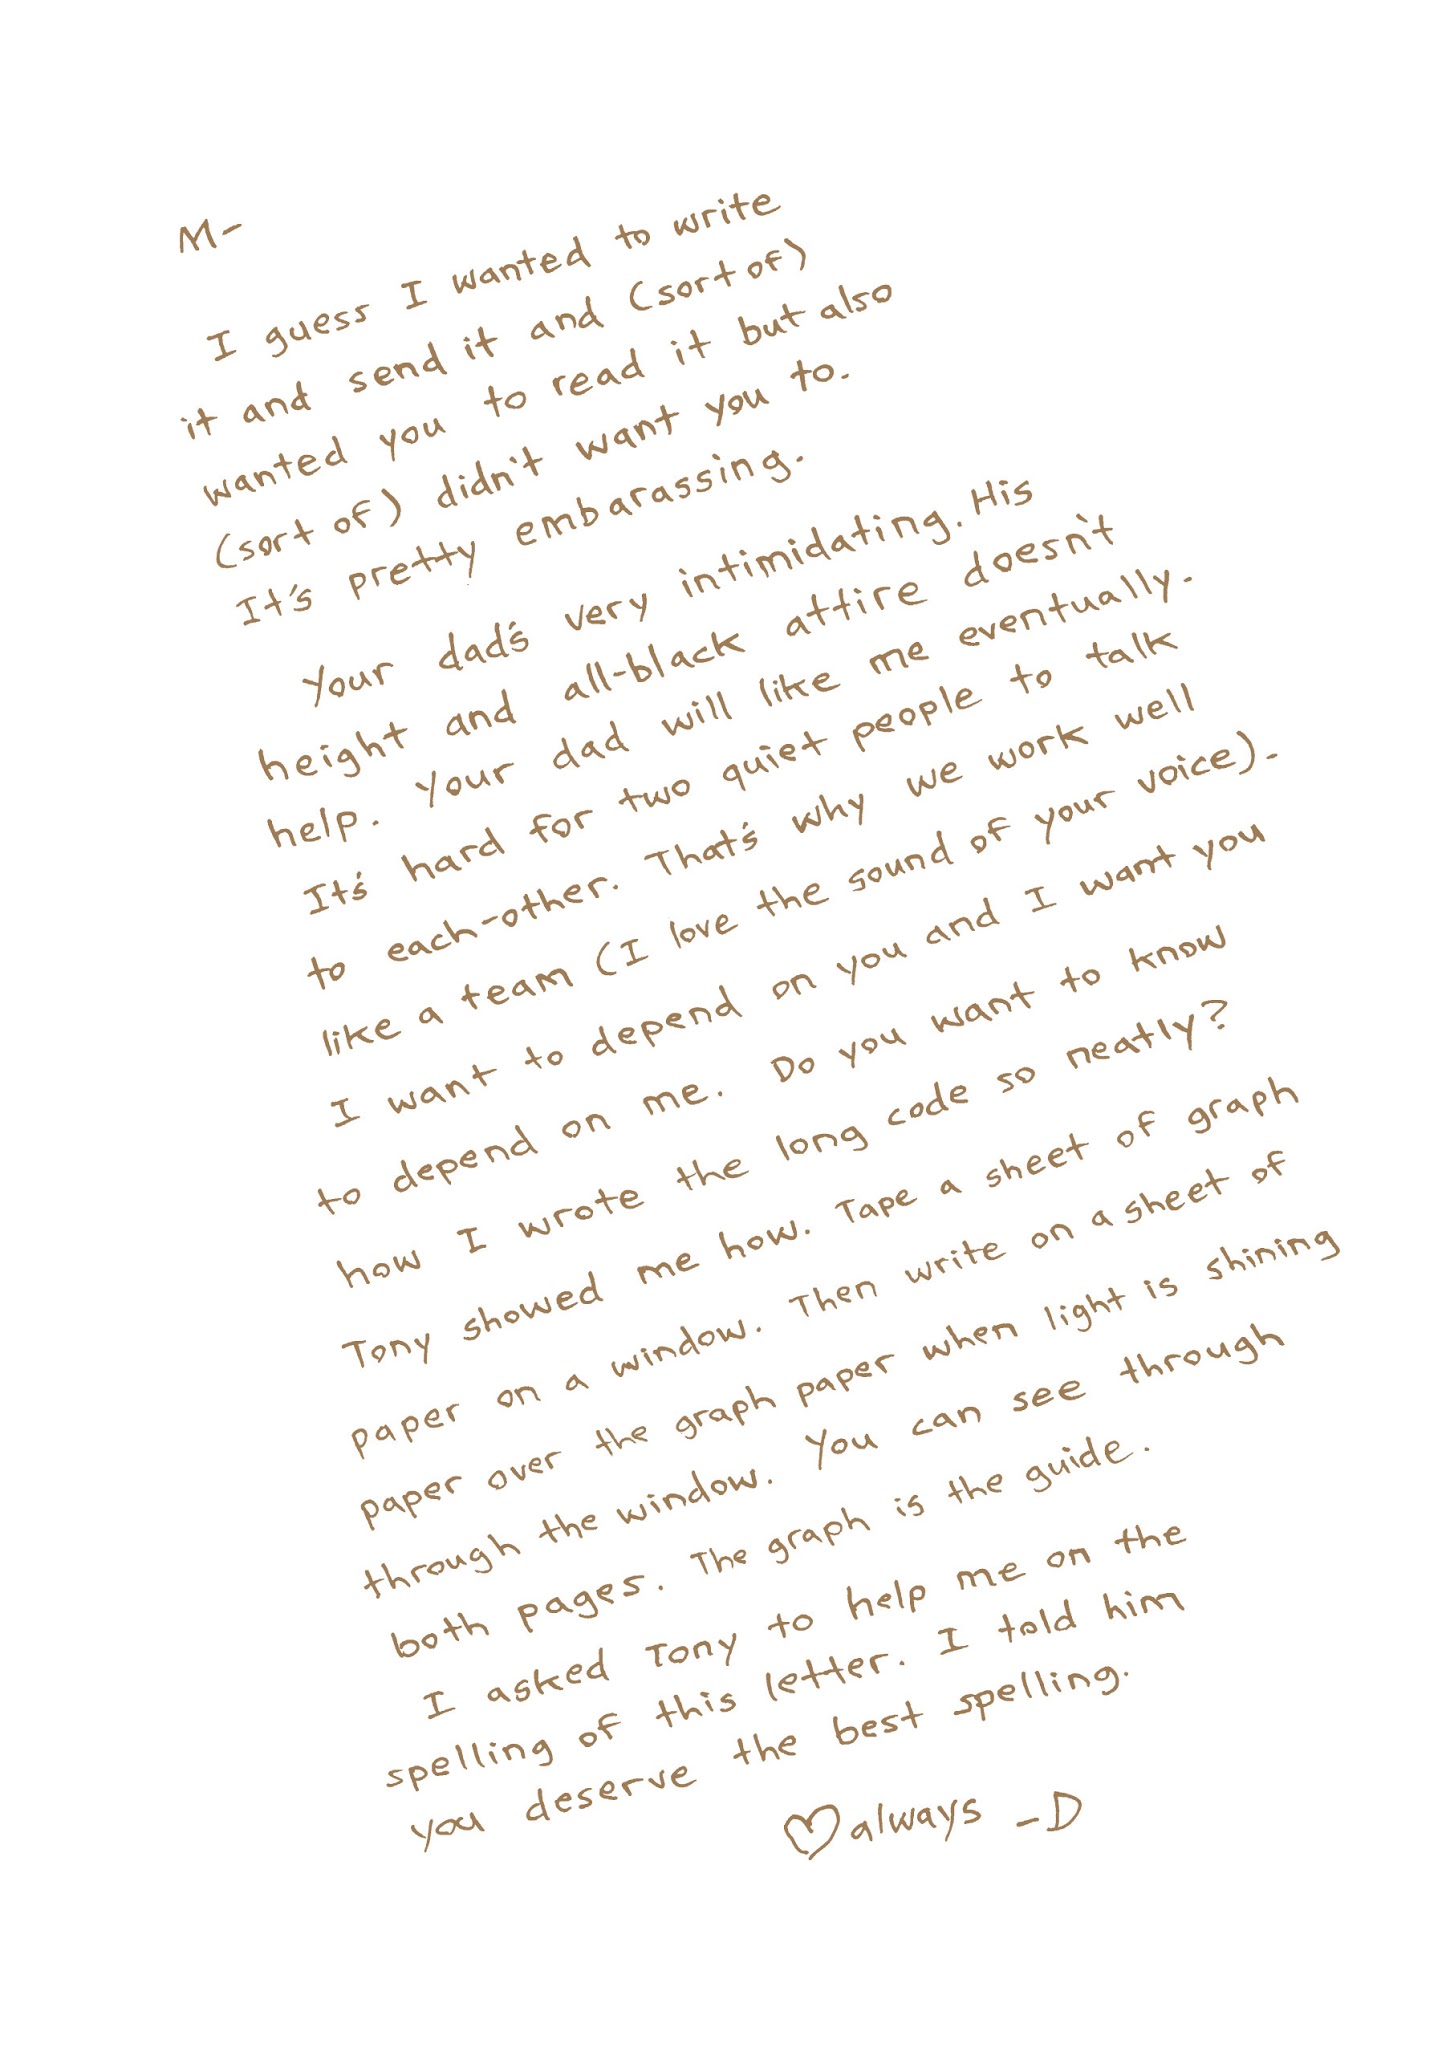 M-
I guess I wanted to write
it and send it and (sort of)
wanted you to read it but also
(sort of) didn't want you to.
It's pretty embarassing.
Your dad's very intimidating. His
height and all-black attire doesn't
help. Your dad will like me eventually.
It's hard for two quiet people to talk
to each-other. That's why we work well
like a team (I love the sound of your voice).
I want to depend on you and I want you
to depend on me. Do you want to know
how I wrote the long code so neatly?
Tony showed me how. Tape a sheet of graph
paper on a window. Then write on a sheet of
paper over the graph paper when light is shining
through the window. You can see through
both pages. The graph is the guide.
I asked Tony to help me on the
spelling of this letter. I told him
you deserve the best spelling.
♡always -D